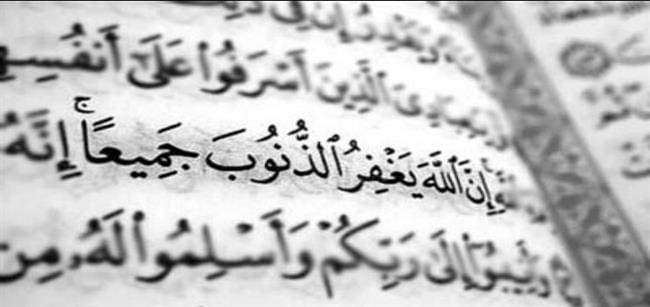 وَيَقْدِرُ إِنَّ فِى
يَٰعِبَادِىَ ٱلَّذِينَ أَسْرَفُوا۟ عَلَىٰٓ أَنفُسِهِ
إِنَّ ٱللَّهَ يَغْفِرُ ٱلذُّنُوبَ جَمِيعًا ۚ إِنَّهُ
إِلَىٰ رَبِّكُمْ وَأَسْلِمُوا۟ لَهُۥ مِن